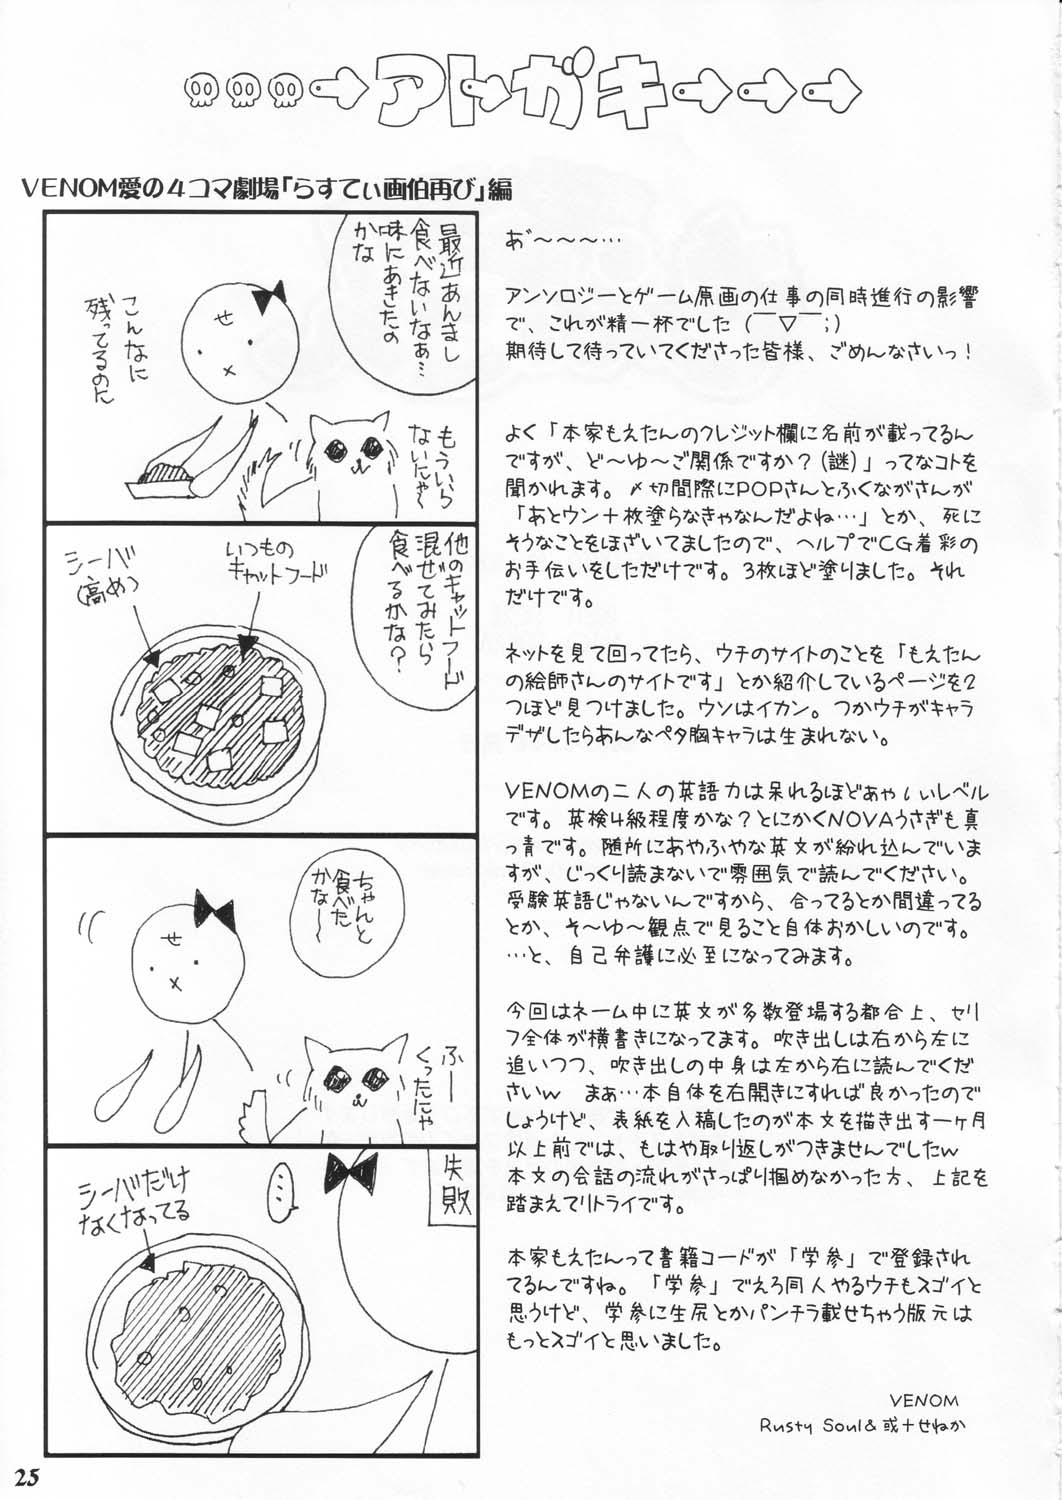 アトガキ
VENOM愛の4コマ劇場「らすてぃ画伯再び」編
最近あんまし
食べないなぁ…
味にあきたの
かな
せ
こんなに
残ってるのに
もういら
ないにゃ〜
他のキャットフード
混ぜてみたら
食べるかな?
いつもの
キャットフード
シーバ
(高め)
ちゃんと
食べた
かな〜
せ
ふー
くったにゃ
失敗
…
シーバだけ
なくなってる
あ゛〜〜〜…
アンソロジーとゲーム原画の仕事の同時進行の影響
で、これが精一杯でした(￣▽￣;)
期待して待っていてくださった皆様、ごめんなさいっ!
よく「本家もえたんのクレジット欄に名前が載ってるん
ですが、ど〜ゆ〜ご関係ですか?(謎)」ってなコトを
聞かれます。〆切間際にPOPさんとふくながさんが
「あとウン十枚塗らなきゃなんだよね…」とか、死に
そうなことをほざいてましたので、ヘルプでCG着彩の
お手伝いをしただけです。3枚ほど塗りました。それ
だけです。
ネットを見て回ってたら、ウチのサイトのことを「もえたん
の絵師さんのサイトです」とか紹介しているページを2
つほど見つけました。ウソはイカン。つかウチがキャラ
デザしたらあんなペタ胸キャラは生まれない。
VENOMの二人の英語力は呆れるほどあゃιぃレベル
です。英検4級程度かな?とにかくNOVAうさぎも真
っ青です。随所にあやふやな英文が紛れ込んでいま
すが、じっくり読まないで雰囲気で読んでください。
受験英語じゃないんですから、合ってるとか間違ってる
とか、そ〜ゆ〜観点で見ること自体おかしいのです。
…と、自己弁護に必至になってみます。
今回はネーム中に英文が多数登場する都合上、セリ
フ全体が横書きになってます。吹き出しは右から左に
追いつつ、吹き出しの中身は左から右に読んでくだ
さいw　まぁ…本自体を右開きにすれば良かったので
しょうけど、表紙を入稿したのが本文を描き出す一ヶ月
以上前では、もはや取り返しがつきませんでしたw
本文の会話の流れがさっぱり掴めなかった方、上記を
踏まえてリトライです。
本家もえたんって書籍コードが「学参」で登録され
てるんですね。「学参」でえろ同人やるウチもスゴイと
思うけど、学参に生尻とかパンチラ載せちゃう版元は
もっとスゴイと思いました。
VENOM
Rusty Soul&或十せねか
25